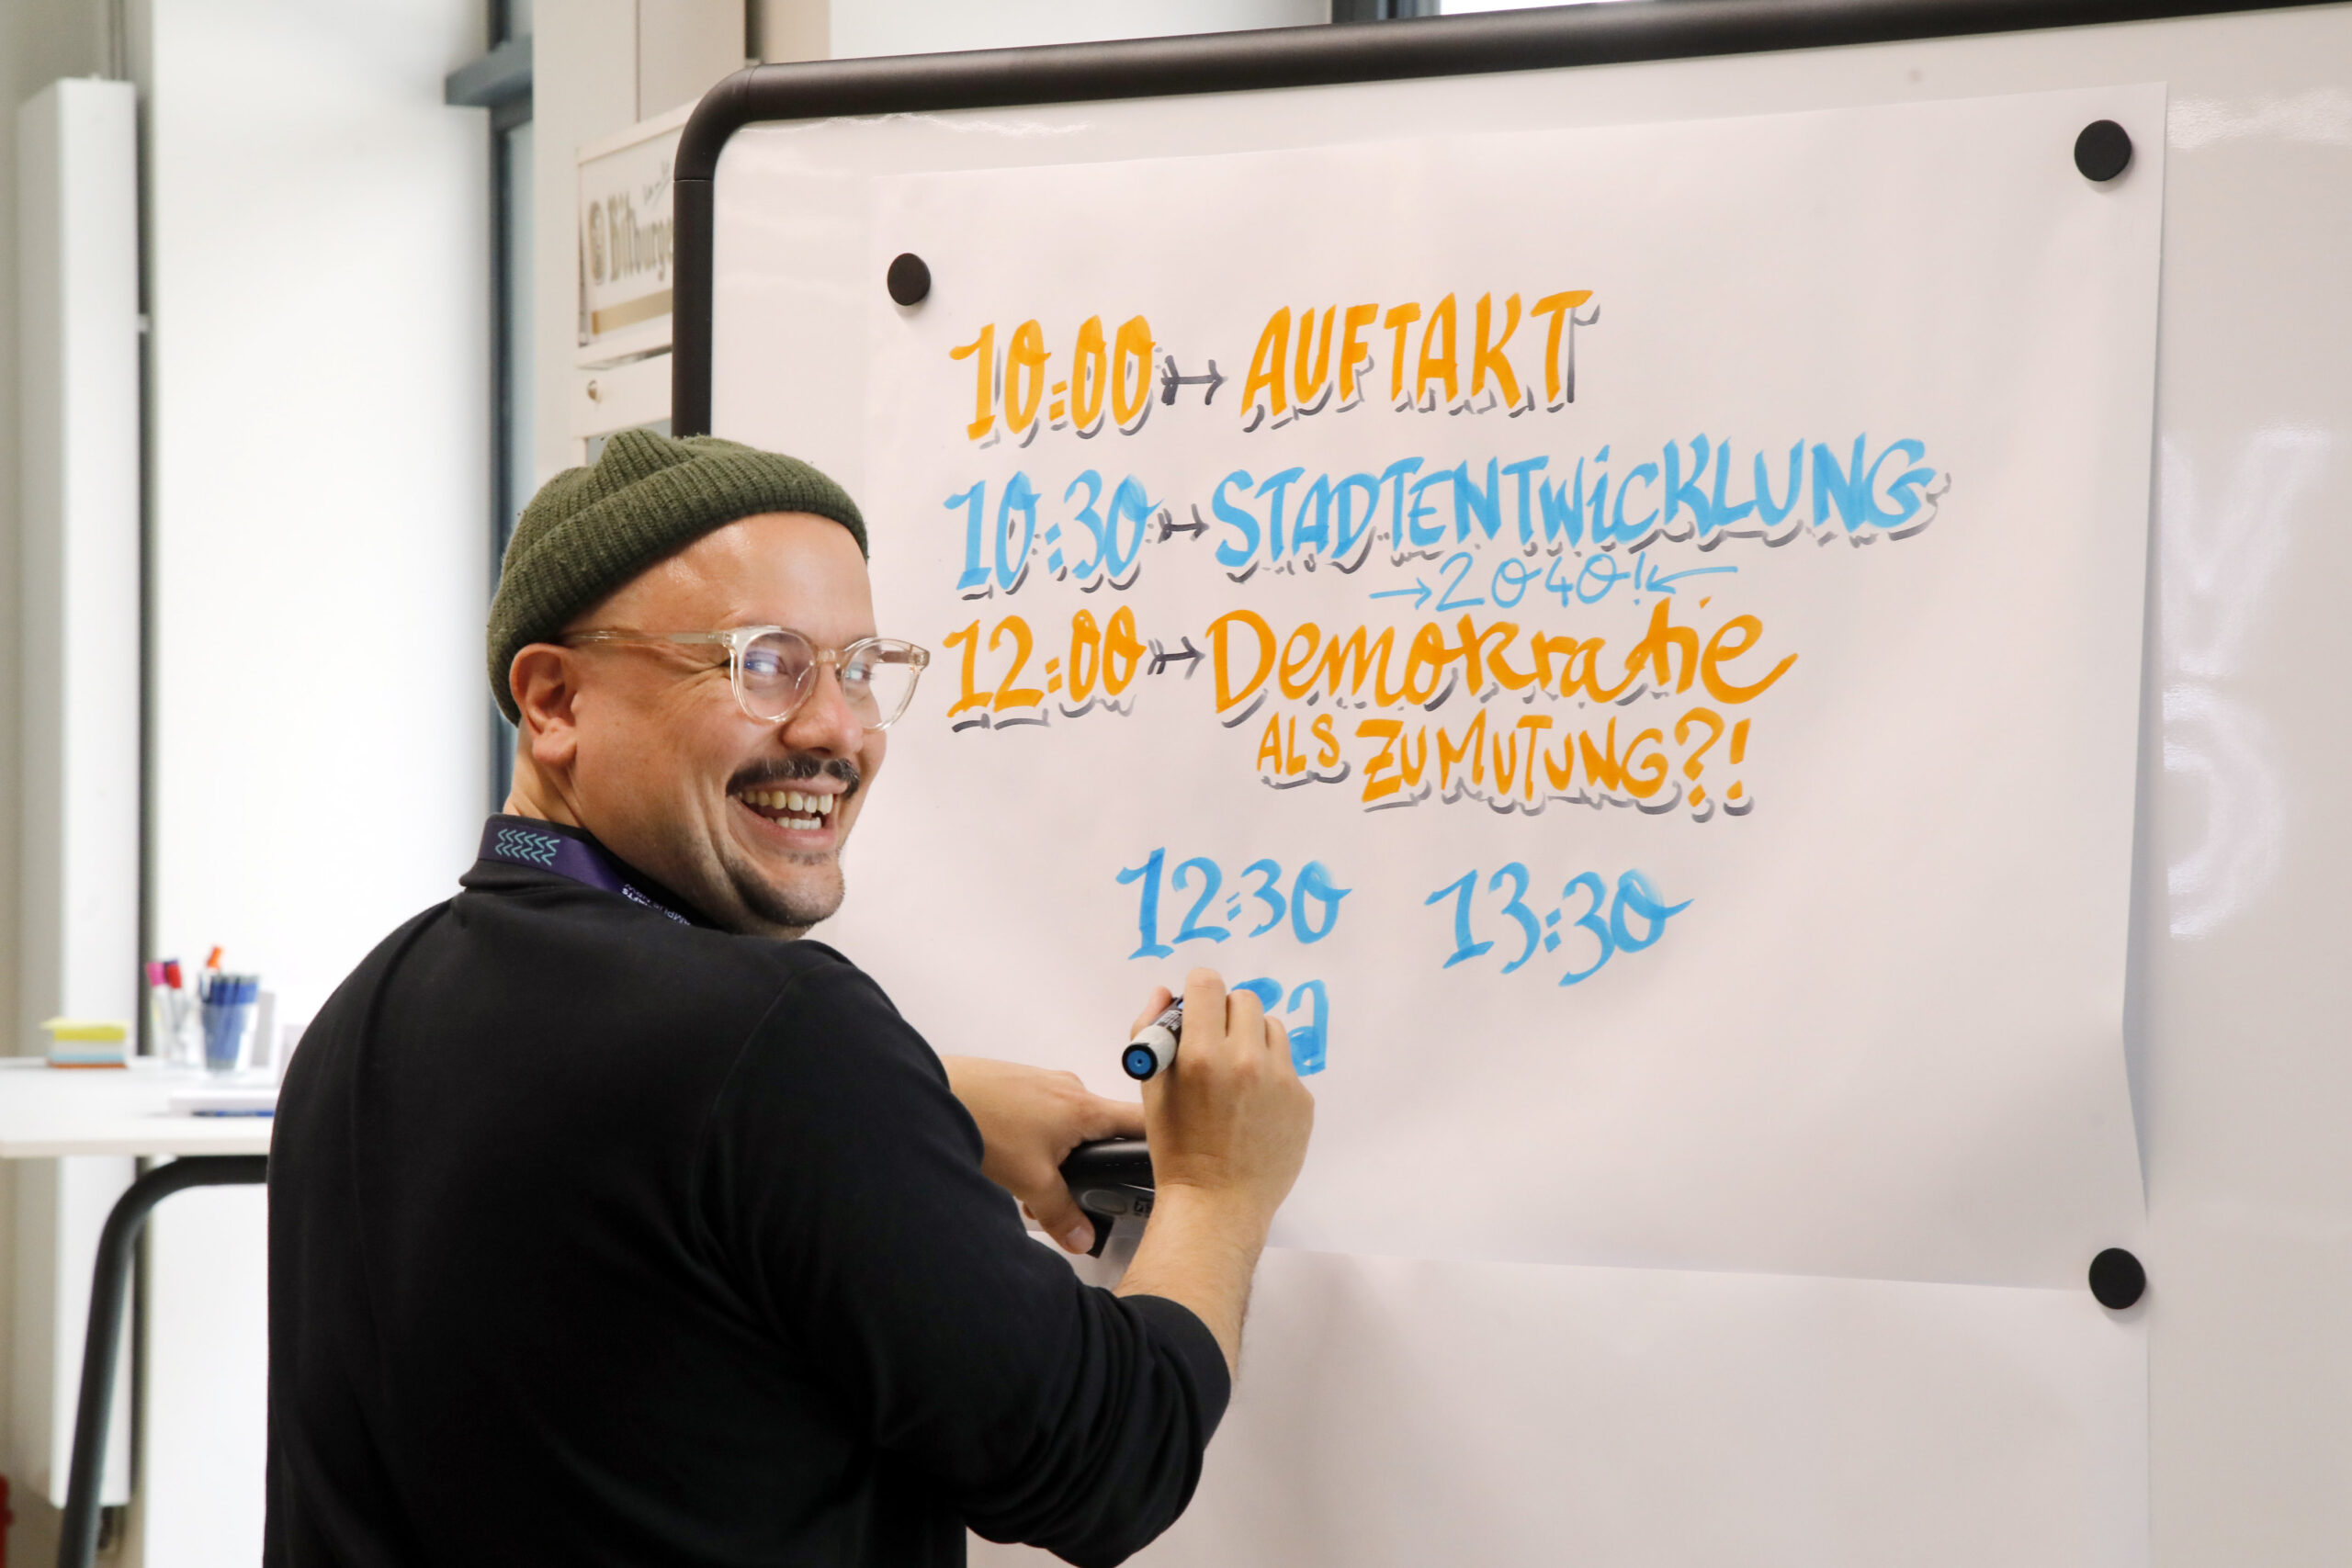 Bitburge
10:00 ↣ AUFTAKT
10:30 ↣ STADTENTWiCKLUNG
→ 2040! ←
12:00 ↣ Demokratie
ALS ZUMUTUNG?!
12:30 13:30